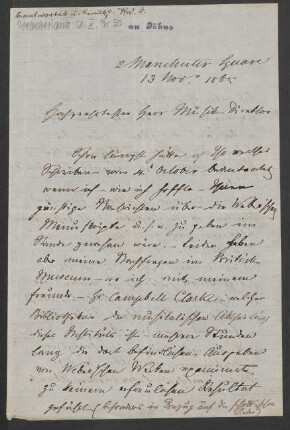 Weberiana Cl. X, Nr. 50
an Jähns
2 Manchester Square
13 Nov. 1865
Hochgeehrtester Herr Musik-Direktor
Schon längst hätte ich Ihr werthes
Schreiben vom 4t October beantwortet
wenn ich – wie ich hoffte – Ihnen
günstige Nachrichten über die Weberschen
Manuscripte u.s.w. zu geben im
Stande gewesen wäre. – Leider haben
aber meine Nachfragen im British
Museum – wo ich mit meinem
Freunde – Hr Campbell Clarke – welcher
Bibliothekar der musikalischen Abtheilung
dieses Instituts ist – mehrere Stunden
lang die dort befindlichen Ausgaben
von Weberschen Werken examinirte
zu keinem erfreulichen Resultat
geführt (besonders in Bezug auf die schottischen
Lieder)